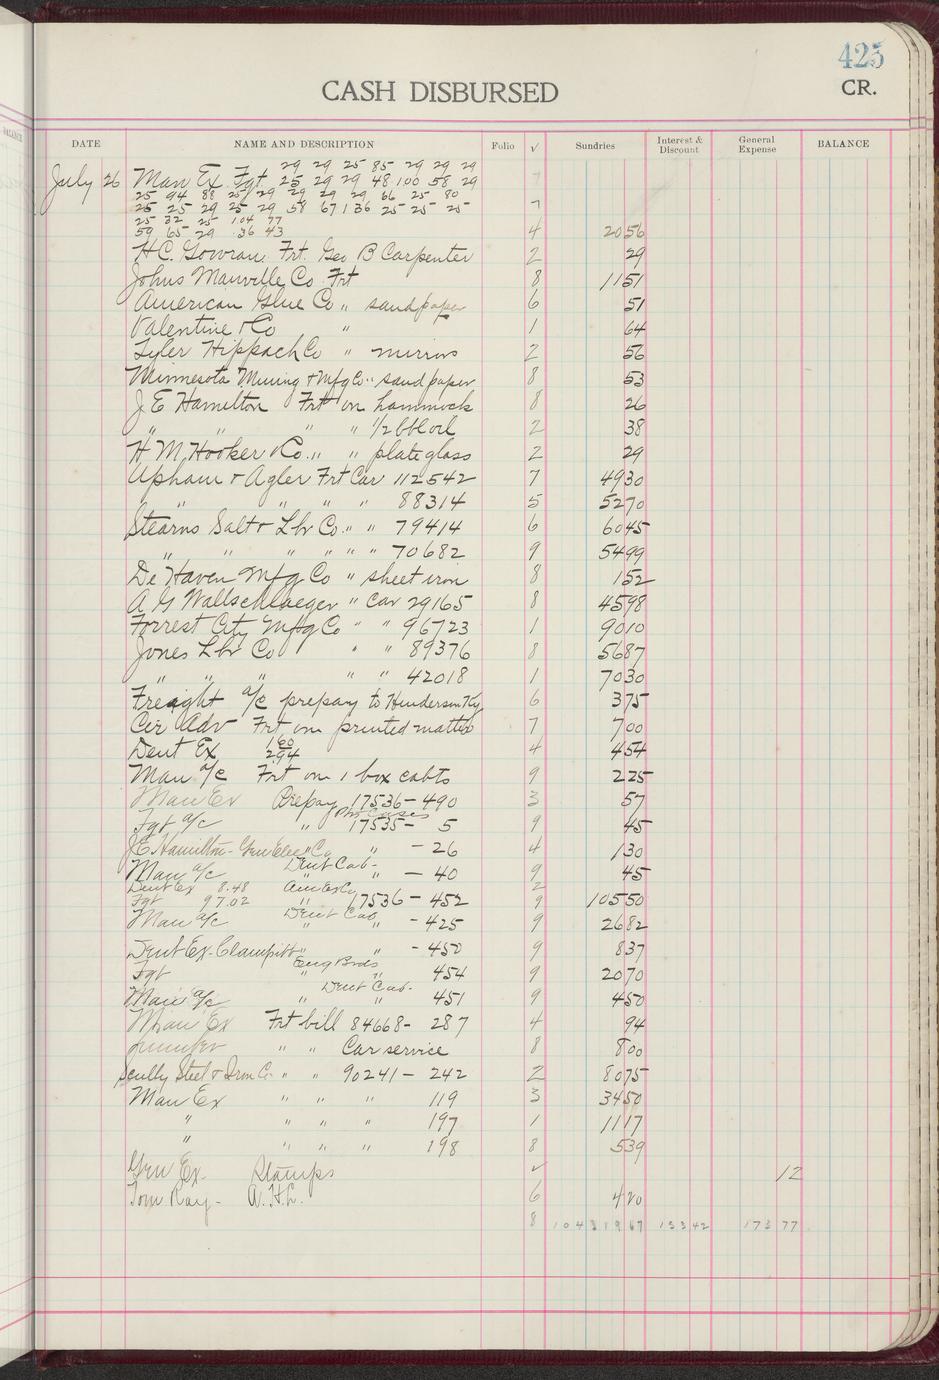 425
CASH DISBURSED CR.
DATE NAME AND DESCRIPTION Folio √ Sundries Interest & Discount General Expense BALANCE
29 29 25 85 29 29 29
July 26 Man Ex Fgt 25 29 29 48 100 58 29 7
25 94 88 25 29 29 29 29 66 25 80
25 25 29 25 29 58 67 136 25 25 25 7
25 32 25 104 77
59 65 29 36 43 4 2056
H C. Gowran Frt. Geo B Carpenter 2 29
Johns Manville Co Frt 8 1151
American Glue Co " sandpaper 6 51
Valentine & Co " 1 64
Tyler Hippach Co " mirrors 2 56
Minnesota Mining & Mfg Co " sandpaper 8 53
J E Hamilton Frt on hammock 8 26
" " " " 1/2 bbl oil 2 38
H M Hooker & Co " " plate glass 2 29
Upham & Agler Frt Car 112542 7 4930
" " " " " 88314 5 5270
Stearns Salt & Lbr Co " " 79414 6 6045
" " " " " " 70682 9 5499
De Haven Mfg Co " sheet iron 8 152
A G Wallschlaeger " Car 29165 8 4598
Forrest City Mfg Co " " 96723 1 9010
Jones Lbr Co " " 89376 8 5687
" " " " " 42018 1 7030
Freight a/c prepay to Henderson Ky 6 375
Cir Adv Frt on printed matter 7 700
Dent Ex 160 294 4 454
Man a/c Frt on 1 box cabts 9 225
Man Ex Prepay 17536 - 490 3 57
Fgt a/c " Ptr Cases 17535 - 5 9 45
J E Hamilton - Gen Elec Co " - 26 4 130
Man a/c Dent Cab - " " - 40 9 45
Dent Ex 8.48 Am Ex Co 2
Fgt 97.02 " 17536 - 452 9 10550
Man a/c Dent Cab, " " - 425 9 2682
Dent Ex - Clampitt " " - 450 9 837
Fgt Eng Bros " " 454 9 2070
Man a/c Dent Cab. " " 451 9 450
Man Ex Frt bill 84668 - 287 4 94
" " Car service 8 800
Scully Steel & Iron Co " " 90241 - 242 2 8075
Man Ex " " " 119 3 3450
" " " " 197 1 1117
" " " " 198 8 539
Gen Ex - Stamps √ 12
Tom Ray - A. H. L. 6 420
8 10431967 15342 17377